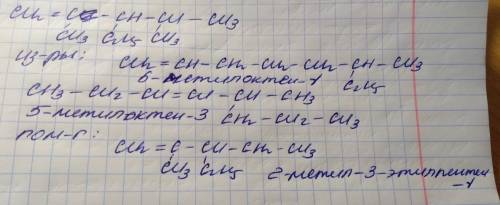 CH₂ = C - CH - CH - CH₃
CH₃ C₂H₅ CH₃
из-ры: CH₂ = CH - CH₂ - CH₂ - CH₂ - CH - CH₃
6-метилоктен-1 C₂H₅
CH₃ - CH₂ - CH = CH - CH - CH₃
5-метилоктен-3 CH₂ - CH₂ - CH₃
гом-г:
CH₂ = C - CH - CH₂ - CH₃
CH₃ C₂H₅ 2-метил-3-этилпентен
-1